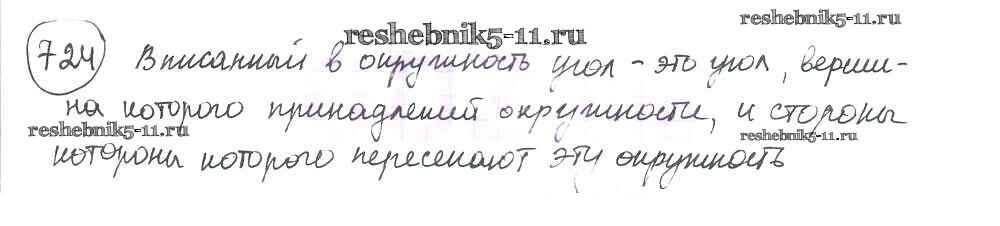 reshebnik5-11.ru
reshebnik5-11.ru
724 Вписанный в окружность угол - это угол, верши-
на которого принадлежит окружности, и стороны
reshebnik5-11.ru
reshebnik5-11.ru
которого пересекают эту окружность